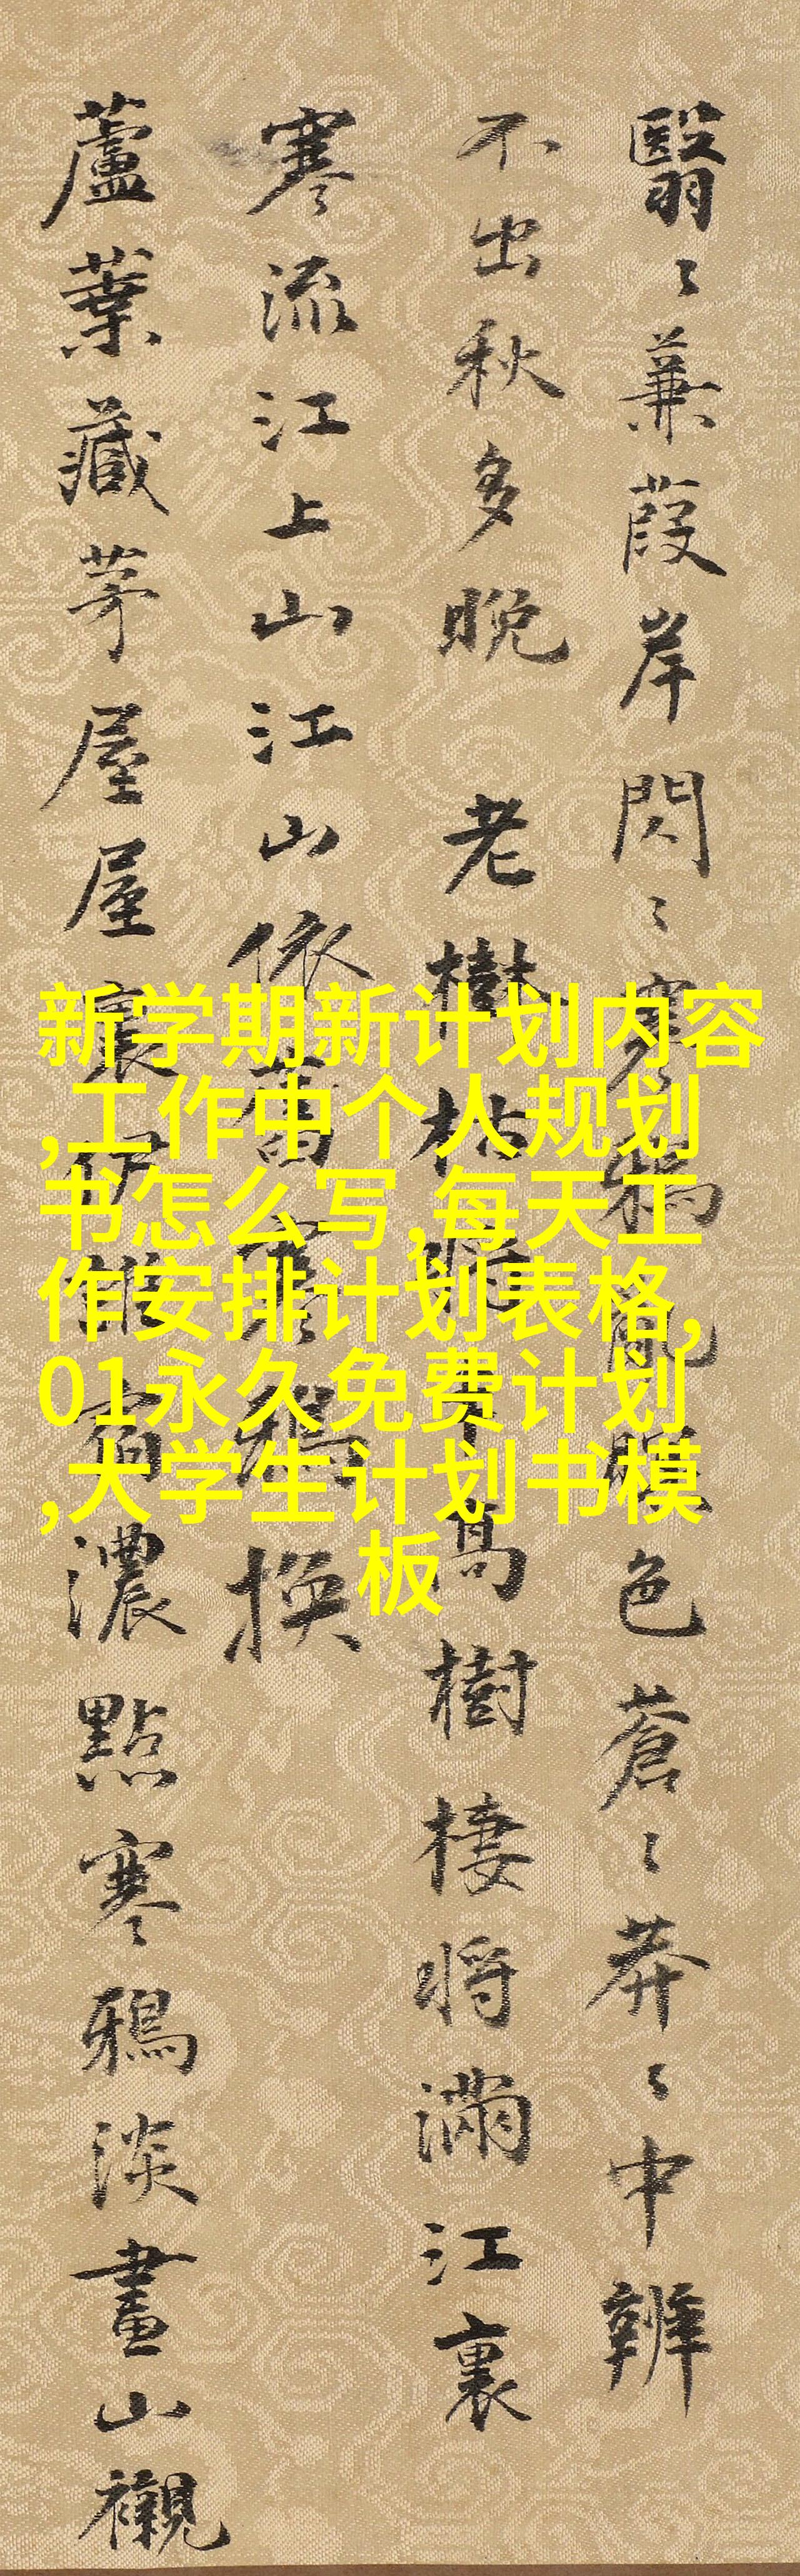 翳〻蒹葭岸閃〻寒鴉亂暝色蒼〻莽〻中辨
不出秋多晚 老樹枯髙樹棲將滿江裏
寒流江上山江山依舊寒鴉換
蘆葉藏茅屋屋裏伊誰宿濃點寒鴉淡畫山襯
新学期新计划内容
,工作中个人规划
书怎么写,每天工
作安排计划表格,
01永久免费计划
,大学生计划书模
板